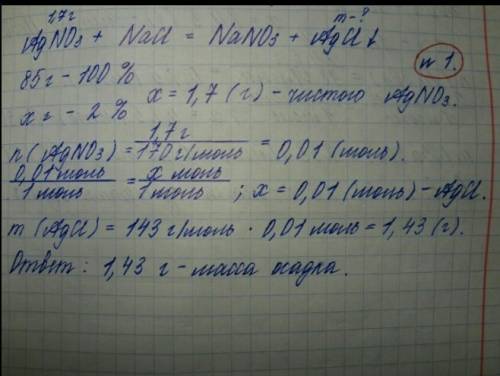 1,7г m-?
AgNO3 + NaCl = NaNO3 + AgCl↓
№1.
85г - 100%
x г - 2% x = 1,7 (г) - чистого AgNO3.
n(AgNO3) = 1,7г / 170 г/моль = 0,01 (моль).
0,01 моль / 1 моль = x моль / 1 моль ; x = 0,01 (моль) - AgCl.
m(AgCl) = 143 г/моль · 0,01 моль = 1,43 (г).
Ответ: 1,43 г - масса осадка.